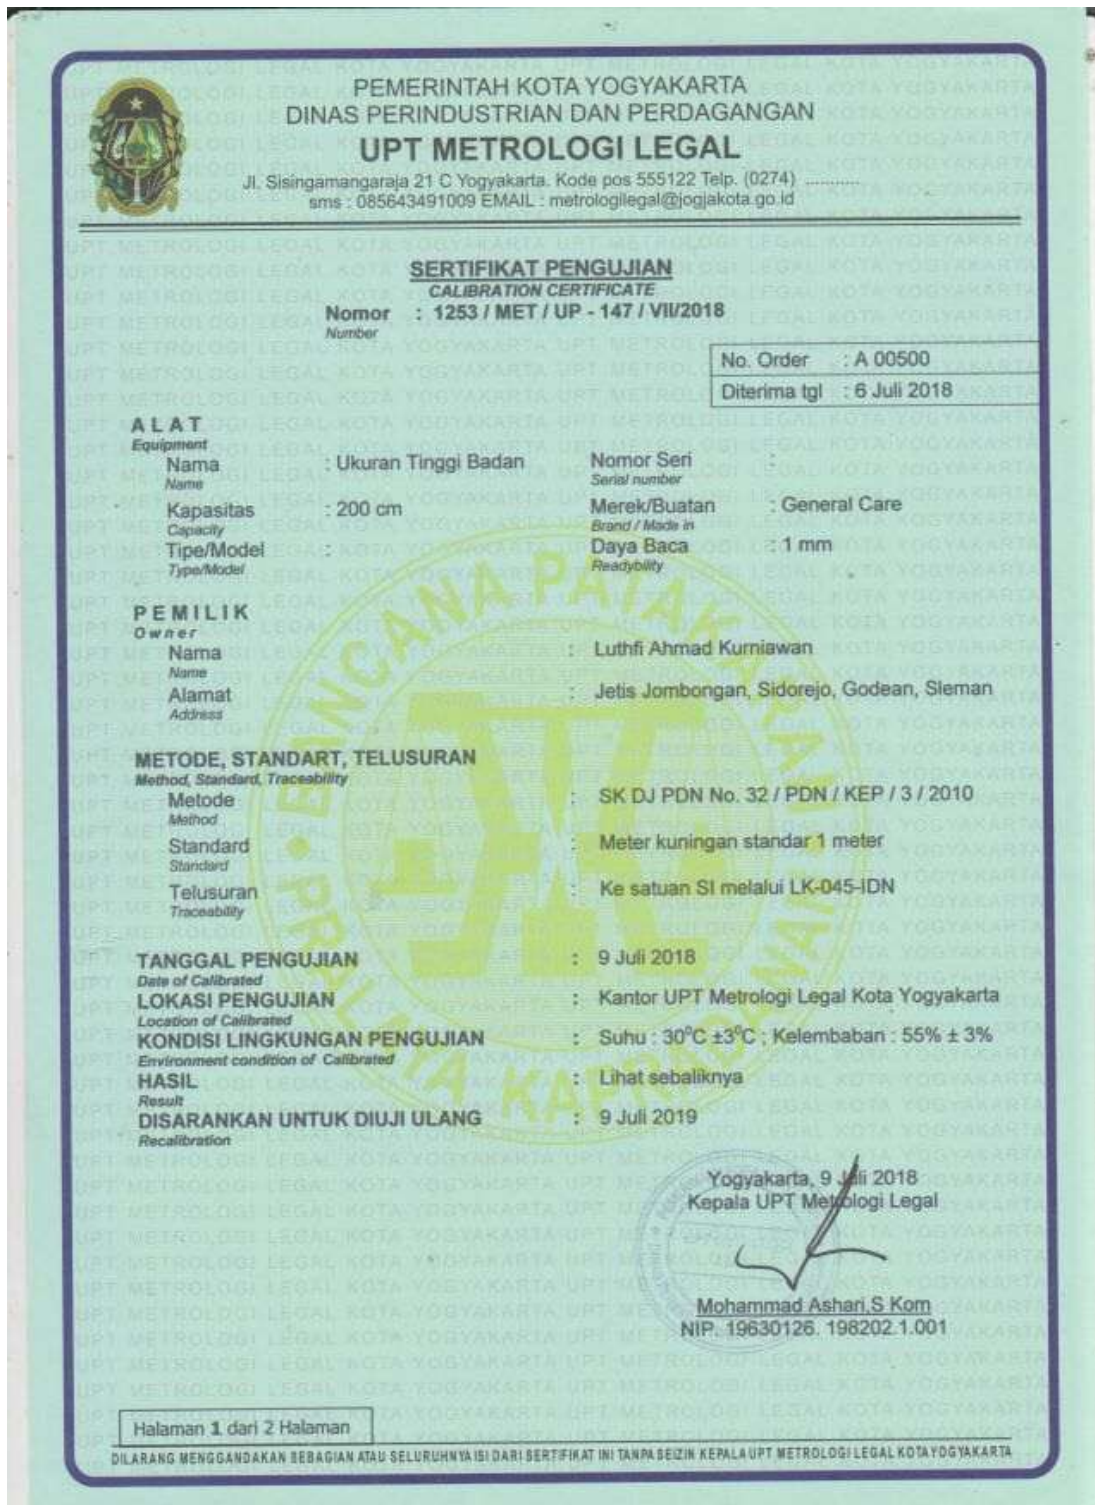 PEMERINTAH KOTA YOGYAKARTA
DINAS PERINDUSTRIAN DAN PERDAGANGAN
UPT METROLOGI LEGAL
Jl. Sisingamangaraja 21 C Yogyakarta. Kode pos 555122 Telp. (0274) ............
sms : 085643491009 EMAIL : metrologilegal@jogjakota.go.id
SERTIFIKAT PENGUJIAN
CALIBRATION CERTIFICATE
Nomor : 1253 / MET / UP - 147 / VII/2018
Number
No. Order : A 00500
Diterima tgl : 6 Juli 2018
ALAT
Equipment
Nama : Ukuran Tinggi Badan Nomor Seri :
Name Serial number
Kapasitas : 200 cm Merek/Buatan : General Care
Capacity Brand / Made in
Tipe/Model : Daya Baca : 1 mm
Type/Model Readybility
PEMILIK
Owner
Nama : Luthfi Ahmad Kurniawan
Name
Alamat : Jetis Jombongan, Sidorejo, Godean, Sleman
Address
METODE, STANDART, TELUSURAN
Method, Standard, Traceability
Metode : SK DJ PDN No. 32 / PDN / KEP / 3 / 2010
Method
Standard : Meter kuningan standar 1 meter
Standard
Telusuran : Ke satuan SI melalui LK-045-IDN
Traceability
TANGGAL PENGUJIAN : 9 Juli 2018
Date of Calibrated
LOKASI PENGUJIAN : Kantor UPT Metrologi Legal Kota Yogyakarta
Location of Calibrated
KONDISI LINGKUNGAN PENGUJIAN : Suhu : 30°C ±3°C ; Kelembaban : 55% ± 3%
Environment condition of Calibrated
HASIL : Lihat sebaliknya
Result
DISARANKAN UNTUK DIUJI ULANG : 9 Juli 2019
Recalibration
Yogyakarta, 9 Juli 2018
Kepala UPT Metrologi Legal
Mohammad Ashari,S Kom
NIP. 19630126. 198202.1.001
Halaman 1 dari 2 Halaman
DILARANG MENGGANDAKAN SEBAGIAN ATAU SELURUHNYA ISI DARI SERTIFIKAT INI TANPA SEIZIN KEPALA UPT METROLOGI LEGAL KOTA YOGYAKARTA